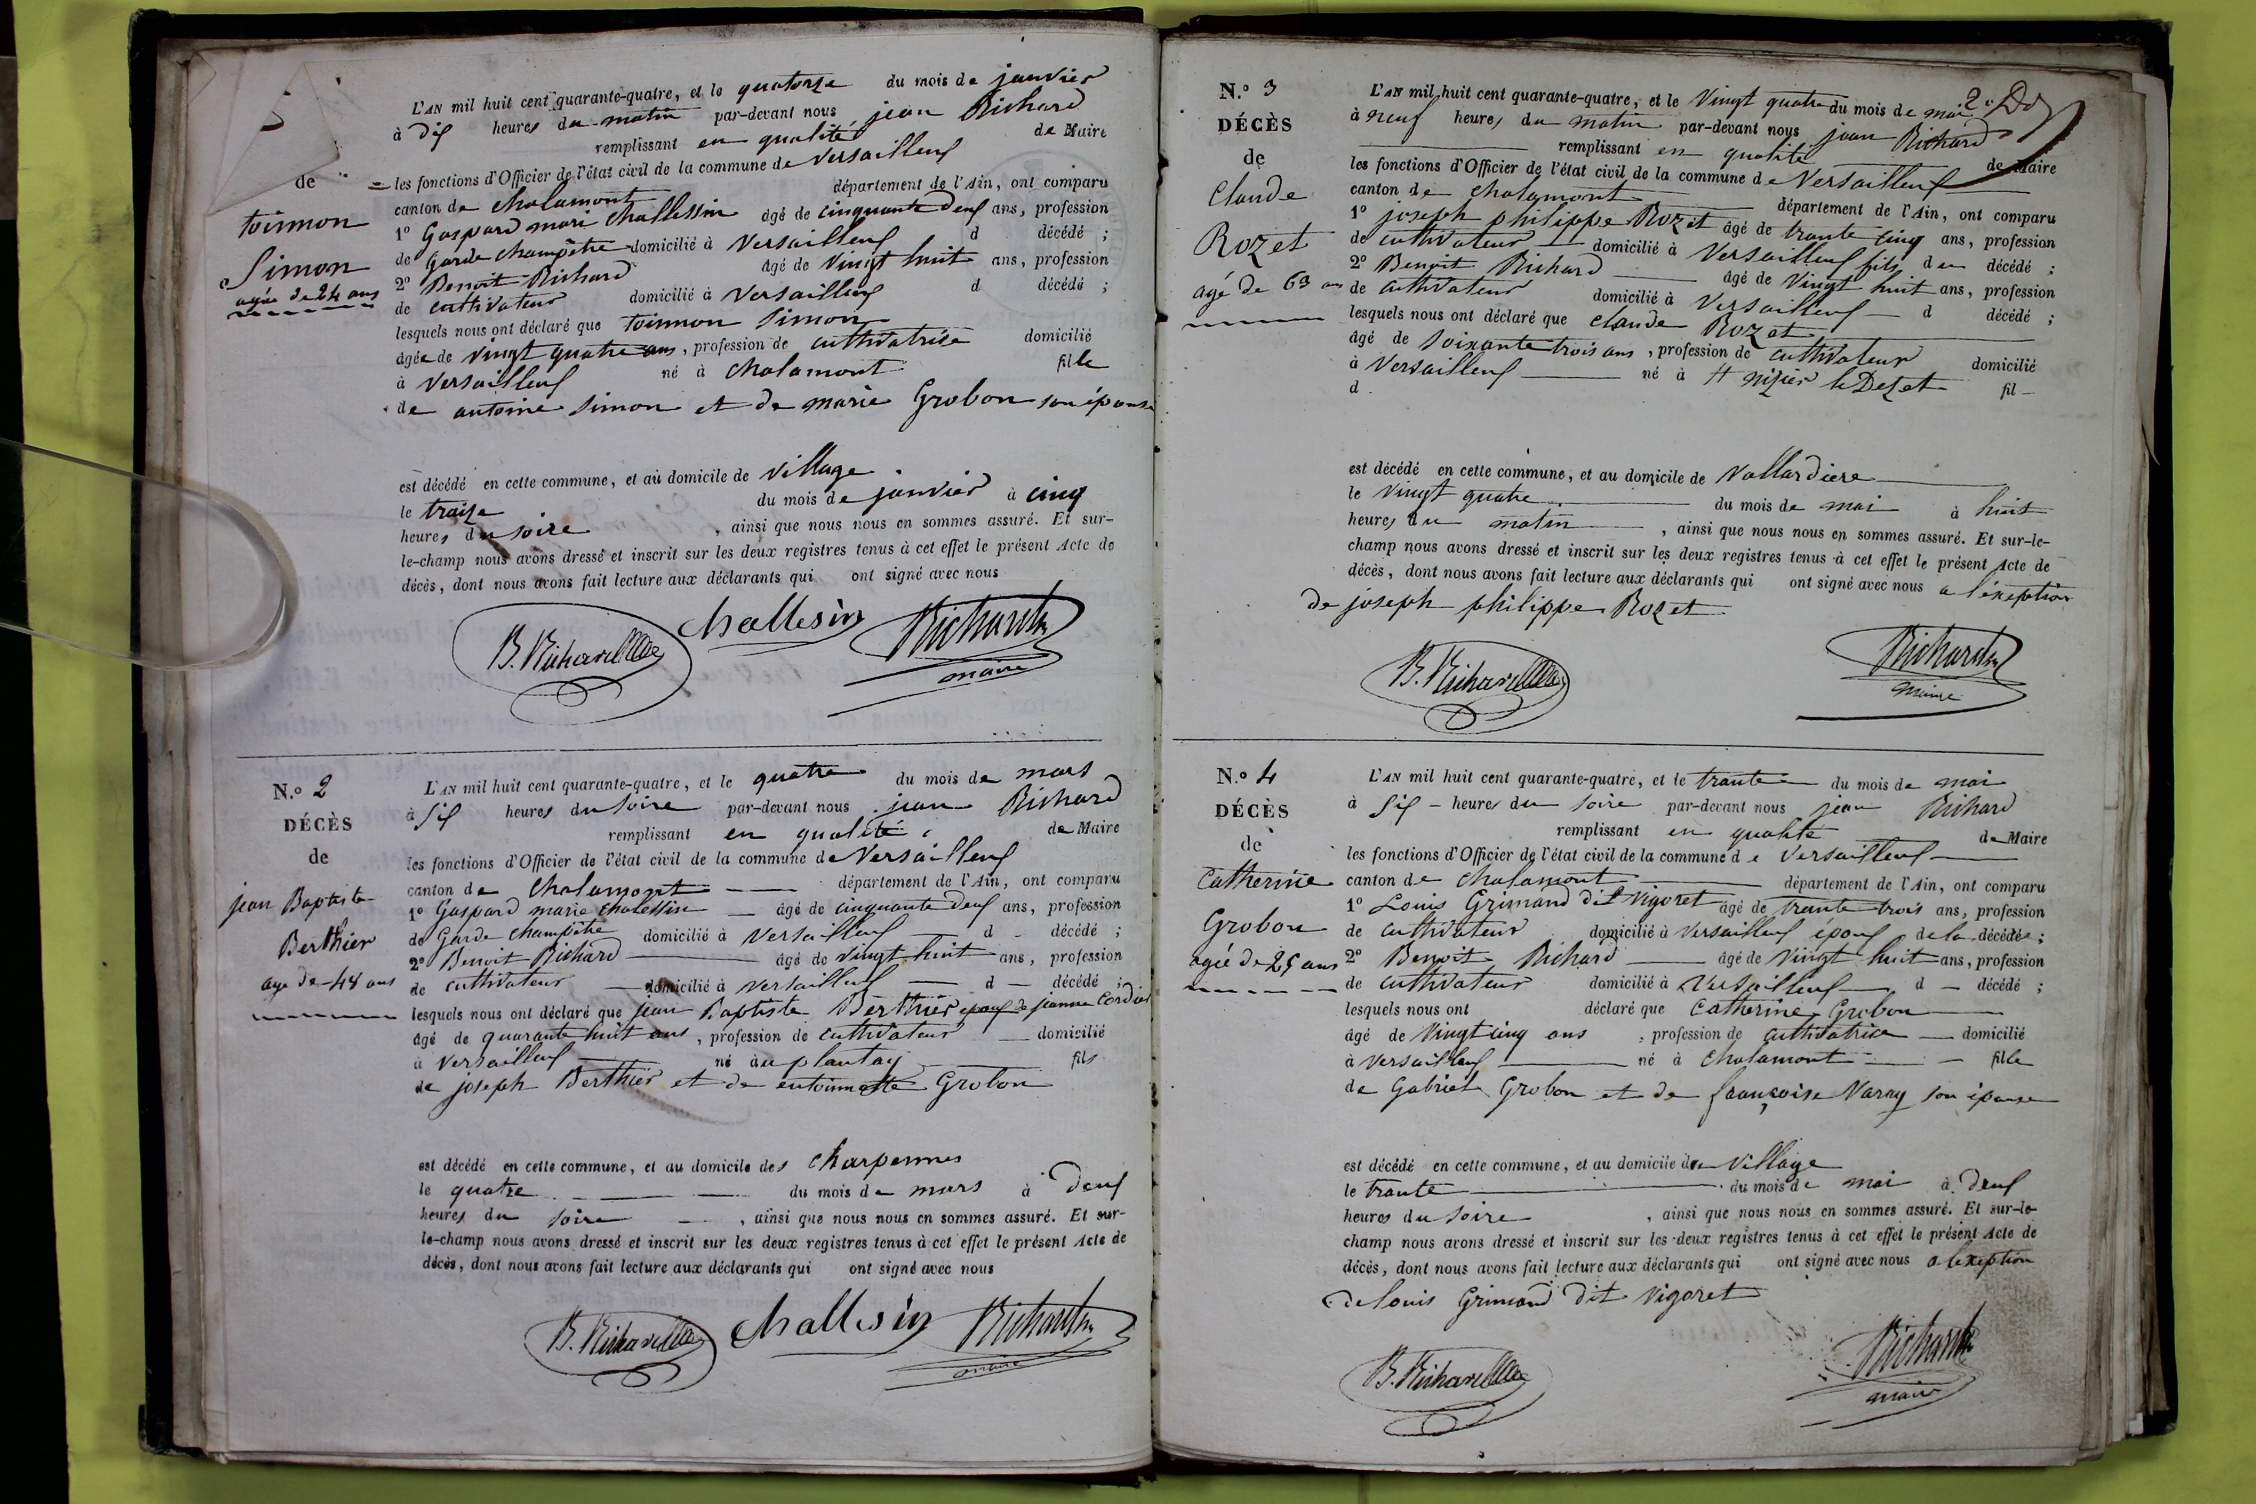 de
toinnon
Simon
agée de 24 ans
L'AN mil huit cent quarante-quatre, et le quatorze du mois de janvier
à dix heures du matin par-devant nous jean Richard
remplissant en qualité de Maire
les fonctions d'Officier de l'état civil de la commune de Versailleux
canton de chalamont département de l'Ain, ont comparu
1° Gaspard marie Challessin âgé de cinquante deux ans, profession
de garde champêtre domicilié à Versailleux d décédé ;
2° Benoit Richard âgé de vingt huit ans, profession
de cultivateur domicilié à Versailleux d décédé ;
lesquels nous ont déclaré que toinnon Simon
âgée de vingt quatre ans, profession de cultivatrice domicilié
à Versailleux né à chalamont fille
de antoine Simon et de marie Grobon son épouse
est décédé en cette commune, et au domicile de village
le traize du mois de janvier à cinq
heures du soire , ainsi que nous nous en sommes assuré. Et sur-
le-champ nous avons dressé et inscrit sur les deux registres tenus à cet effet le présent Acte de
décès, dont nous avons fait lecture aux déclarants qui ont signé avec nous
B. Richard challesin Richard
maire
N.° 2
DÉCÈS
de
jean Baptiste
Berthier
age de 48 ans
L'AN mil huit cent quarante-quatre, et le quatre du mois de mars
à six heures du soire par-devant nous jean Richard
remplissant en qualité de Maire
les fonctions d'Officier de l'état civil de la commune de Versailleux
canton de chalamont département de l'Ain, ont comparu
1° Gaspard marie chalessin âgé de cinquante deux ans, profession
de Garde champêtre domicilié à Versailleux d décédé ;
2° Benoit Richard âgé de vingt huit ans, profession
de cultivateur domicilié à Versailleux d décédé ;
lesquels nous ont déclaré que jean Baptiste Berthier epoux de jeanne Cordier
âgé de quarante huit ans, profession de cultivateur domicilié
à Versailleux né au plantay fils
de joseph Berthier et de entoinnette Grobon
est décédé en cette commune, et au domicile des charpennes
le quatre du mois de mars à deux
heures du soire , ainsi que nous nous en sommes assuré. Et sur-
le-champ nous avons dressé et inscrit sur les deux registres tenus à cet effet le présent Acte de
décès, dont nous avons fait lecture aux déclarants qui ont signé avec nous
B. Richard challesin Richard
maire
N.° 3
DÉCÈS
de
Claude
Rozet
agé de 63 ans
L'AN mil huit cent quarante-quatre, et le Vingt quatre du mois de mai
à neuf heures du matin par-devant nous jean Richard
remplissant en qualité de Maire
les fonctions d'Officier de l'état civil de la commune de Versailleux
canton de chalamont département de l'Ain, ont comparu
1° joseph philippe Rozet âgé de trante cinq ans, profession
de cultivateur domicilié à Versailleux fils du décédé ;
2° Benoit Richard âgé de Vingt huit ans, profession
de cultivateur domicilié à Versailleux d décédé ;
lesquels nous ont déclaré que claude Rozet
âgé de soixante trois ans, profession de cultivateur domicilié
à Versailleux né à St nizier le Dezet fil
d
est décédé en cette commune, et au domicile de Vallardiere
le Vingt quatre du mois de mai à huit
heures du matin , ainsi que nous nous en sommes assuré. Et sur-le-
champ nous avons dressé et inscrit sur les deux registres tenus à cet effet le présent Acte de
décès, dont nous avons fait lecture aux déclarants qui ont signé avec nous a l'exeption
de joseph philippe Rozet
B. Richard Richard
maire
N.° 4
DÉCÈS
de
Catherine
Grobon
agée de 25 ans
L'AN mil huit cent quarante-quatre, et le trante du mois de mai
à six heures du soire par-devant nous jean Richard
remplissant en qualité de Maire
les fonctions d'Officier de l'état civil de la commune de Versailleux
canton de chalamont département de l'Ain, ont comparu
1° Louis Grimand dit Vigoret âgé de trante trois ans, profession
de cultivateur domicilié à Versailleux epoux de la décédée ;
2° Benoit Richard âgé de Vingt huit ans, profession
de cultivateur domicilié à Versailleux d décédé ;
lesquels nous ont déclaré que Catherine Grobon
âgé de Vingt cinq ans , profession de cultivatrice domicilié
à Versailleux né à chalamont fille
de Gabriel Grobon et de françoise Varay son épouse
est décédé en cette commune, et au domicile du Village
le trante du mois de mai à deux
heures du soire , ainsi que nous nous en sommes assuré. Et sur-le-
champ nous avons dressé et inscrit sur les deux registres tenus à cet effet le présent Acte de
décès, dont nous avons fait lecture aux déclarants qui ont signé avec nous a lexeption
de louis Grimand dit Vigoret
B. Richard Richard
maire